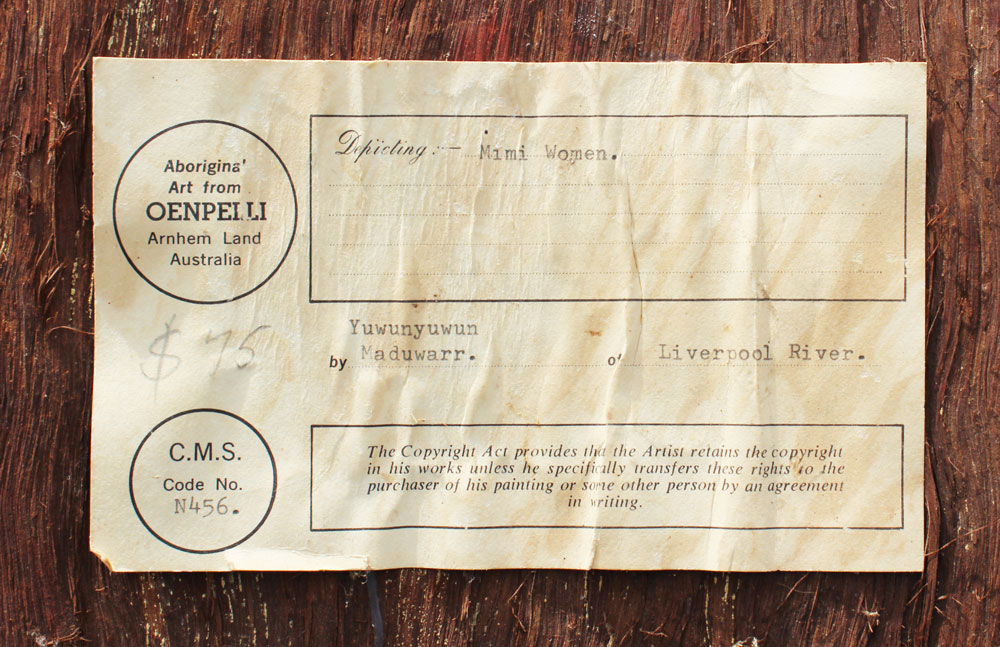 Aboriginal
Art from
OENPELLI
Arnhem Land
Australia
Depicting:— Mimi Women.
$ 75
Yuwunyuwun
by Maduwarr. of Liverpool River.
C.M.S.
Code No.
N456.
The Copyright Act provides that the Artist retains the copyright
in his works unless he specifically transfers these rights to the
purchaser of his painting or some other person by an agreement
in writing.